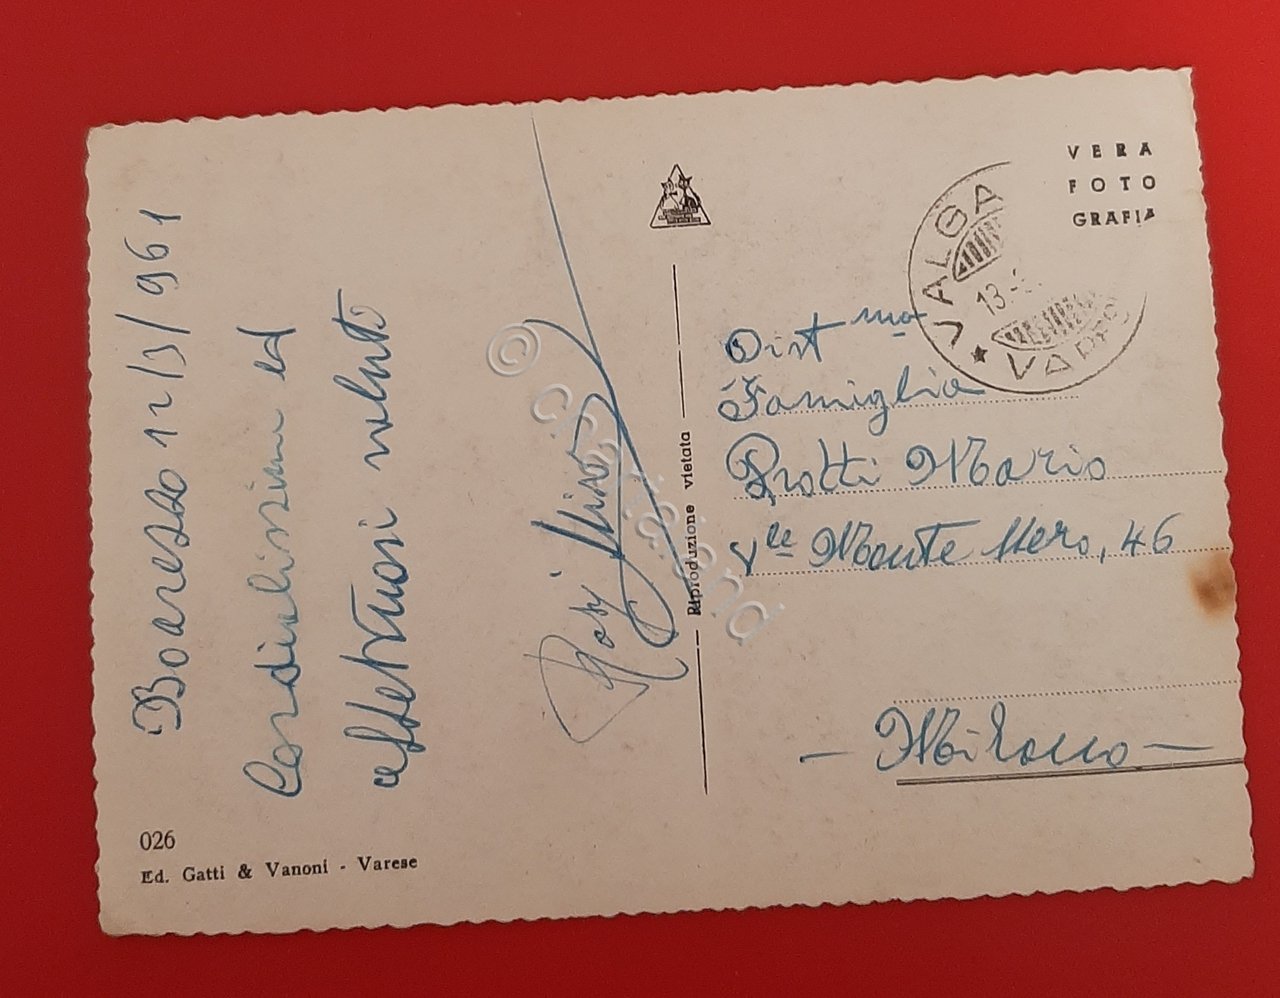 Boaresso 12/3/961
Cordialissimi ed
affettuosi saluti
026
Ed. Gatti & Vanoni - Varese
Riproduzione vietata
VERA
FOTO
GRAFIA
VALGA
13.-3
VARES
Dist mo
Famiglia
Protti Mario
Vle Monte Nero, 46
- Milano -
© charieland